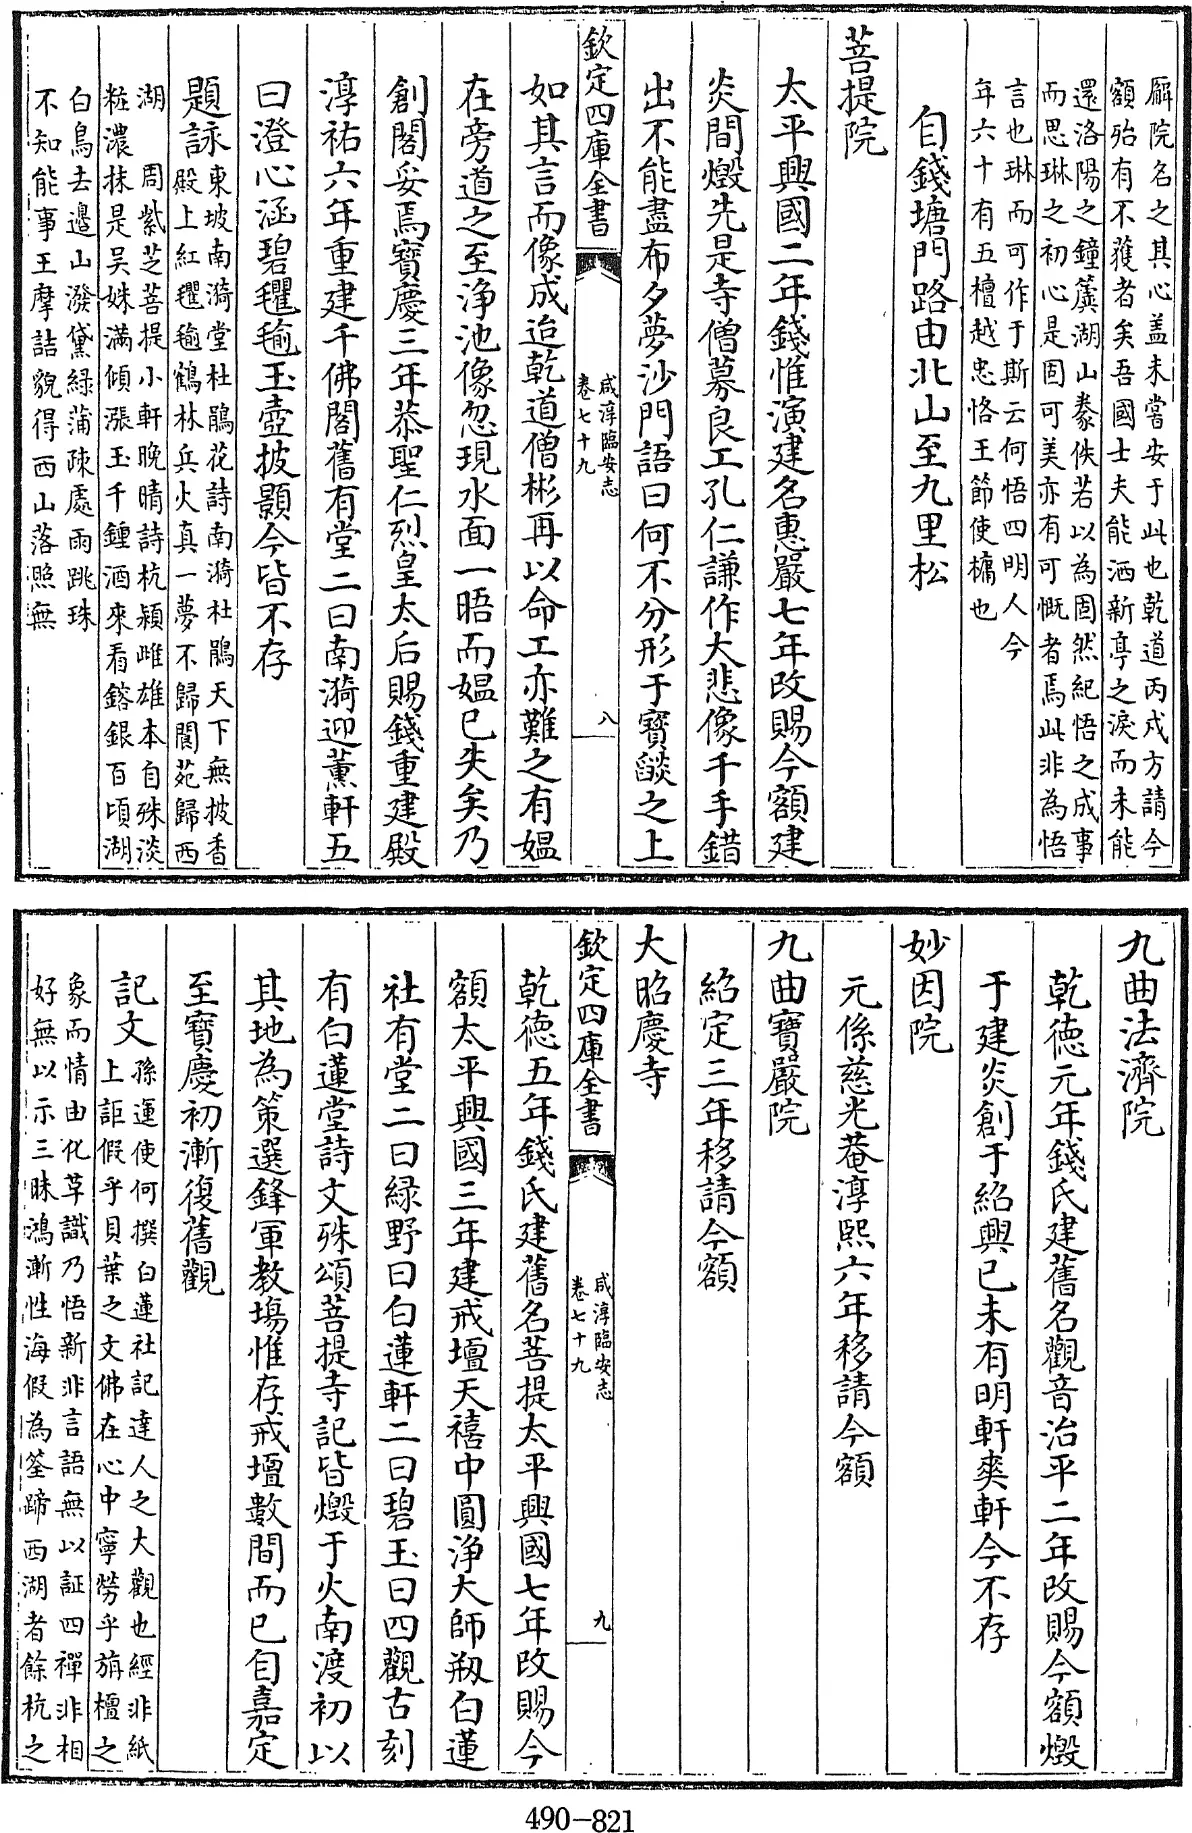 廨院名之其心盖未嘗安于此也乾道丙戌方請今
額殆有不獲者矣吾國士夫能洒新亭之淚而未能
還洛陽之鐘簴湖山豢佚若以為固然紀悟之成事
而思琳之初心是固可美亦有可慨者焉此非為悟
言也琳而可作于斯云何悟四明人今
年六十有五檀越忠恪王節使樇也
自錢塘門路由北山至九里松
菩提院
太平興國二年錢惟演建名惠嚴七年改賜今額建
炎間燬先是寺僧募良工孔仁謙作大悲像千手錯
出不能盡布夕夢沙門語曰何不分形于寳燄之上
欽定四庫全書
咸淳臨安志
卷七十九
八
如其言而像成迨乾道僧彬再以命工亦難之有媪
在旁道之至浄池像忽現水面一晤而媪已失矣乃
創閣妥焉寳慶三年恭聖仁烈皇太后賜錢重建殿
淳祐六年重建千佛閣舊有堂二曰南漪迎薰軒五
曰澄心涵碧㲲毺玉壺披顥今皆不存
題詠東坡南漪堂杜鵑花詩南漪杜鵑天下無披香
殿上紅㲲毺鶴林兵火真一夢不歸閬苑歸西
湖 周紫芝菩提小軒晚晴詩杭潁雌雄本自殊淡
粧濃抹是吳姝滿傾漲玉千鍾酒來看鎔銀百頃湖
白鳥去邊山潑黛綠蒲疎處雨跳珠
不知能事王摩詰貌得西山落照無
九曲法濟院
乾徳元年錢氏建舊名觀音治平二年改賜今額燬
于建炎創于紹興已未有明軒爽軒今不存
妙因院
元係慈光菴淳熙六年移請今額
九曲寳嚴院
紹定三年移請今額
大昭慶寺
欽定四庫全書
咸淳臨安志
卷七十九
九
乾徳五年錢氏建舊名菩提太平興國七年改賜今
額太平興國三年建戒壇天禧中圓浄大師剏白蓮
社有堂二曰緑野曰白蓮軒二曰碧玉曰四觀古刻
有白蓮堂詩文殊頌菩提寺記皆燬于火南渡初以
其地為策選鋒軍教塲惟存戒壇數間而已自嘉定
至寳慶初漸復舊觀
記文孫運使何撰白蓮社記達人之大觀也經非紙
上詎假乎貝葉之文佛在心中寧勞乎旃檀之
象而情由化草識乃悟新非言語無以証四禪非相
好無以示三昧鴻漸性海假為筌蹄西湖者餘杭之
490-821